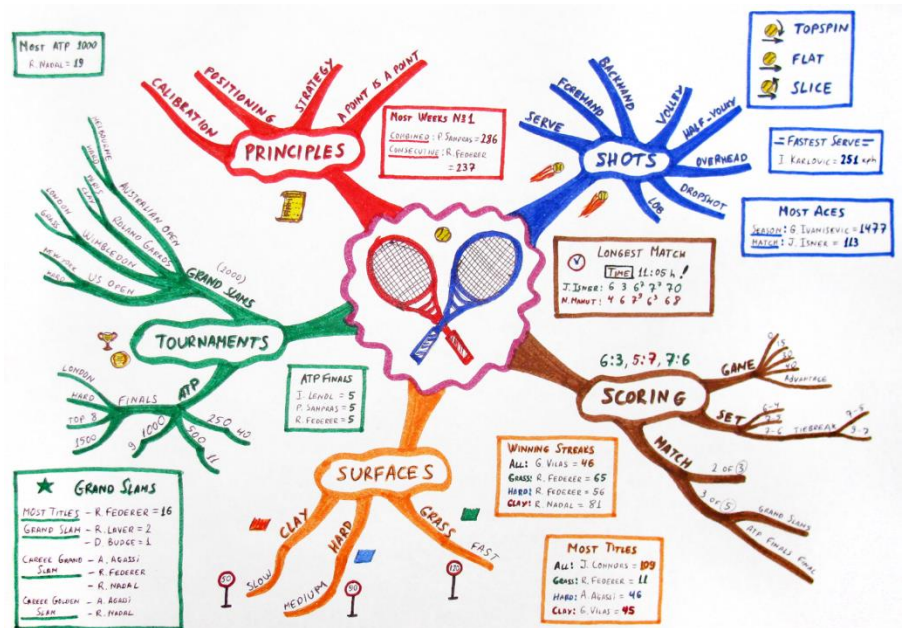 MOST ATP 1000
R. NADAL = 19
CALIBRATION
POSITIONING
STRATEGY
A POINT IS A POINT
PRINCIPLES
MOST WEEKS N31
COMBINED: P. SAMPRAS = 286
CONSECUTIVE: R. FEDERER
= 237
SERVE
FOREHAND
BACKHAND
VOLLEY
HALF-VOLLEY
OVERHEAD
DROPSHOT
LOB
SHOTS
TOPSPIN
FLAT
SLICE
FASTEST SERVE
I. KARLOVIC = 251 kph
MOST ACES
SEASON: G. IVANISEVIC = 1477
MATCH: J. ISNER = 113
LONGEST MATCH
TIME 11:05 h !
J. ISNER: 6 3 6⁷ 7⁷ 70
N. MAHUT: 4 6 7⁹ 6³ 68
MELBOURNE
HARD
AUSTRALIAN OPEN
PARIS
CLAY
ROLAND GARROS
LONDON
GRASS
WIMBLEDON
NEW YORK
HARD
US OPEN
GRAND SLAMS
(2000)
TOURNAMENTS
ATP
FINALS
LONDON
HARD
TOP 8
1500
1000
9
500
11
250
40
ATP FINALS
I. LENDL = 5
P. SAMPRAS = 5
R. FEDERER = 5
6:3, 5:7, 7:6
SCORING
GAME
0
15
30
40
ADVANTAGE
SET
6-4
7-5
7-6
TIEBREAK
7-5
9-7
MATCH
2 OF 3
3 OF 5
GRAND SLAMS
ATP FINALS FINAL
SURFACES
CLAY
SLOW
HARD
MEDIUM
GRASS
FAST
50
90
130
WINNING STREAKS
ALL: G. VILAS = 46
GRASS: R. FEDERER = 65
HARD: R. FEDERER = 56
CLAY: R. NADAL = 81
MOST TITLES
ALL: J. CONNORS = 109
GRASS: R. FEDERER = 11
HARD: A. AGASSI = 46
CLAY: G. VILAS = 45
GRAND SLAMS
MOST TITLES - R. FEDERER = 16
GRAND SLAM - R. LAVER = 2
- D. BUDGE = 1
CAREER GRAND - A. AGASSI
SLAM - R. FEDERER
- R. NADAL
CAREER GOLDEN - A. AGASSI
SLAM - R. NADAL